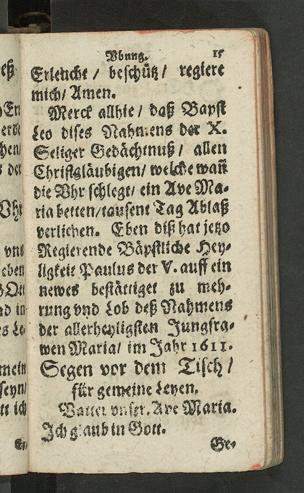 Vbung. 15
Erleuche / beschütz / regiere
mich / Amen.
Merck allhie / daß Bapst
Leo dises Nahmens der X.
Seliger Gedächtnuß / allen
Christgläubigen / welche wañ
die Vhr schlegt / ein Ave Ma-
ria betten / tausent Tag Ablaß
verlichen. Eben diß hat jetzo
Regierende Bäpstliche Hey-
ligkeit Paulus der V. auff ein
newes bestättiget zu meh-
rung vnd Lob deß Nahmens
der allerheyligsten Jungfra-
wen Maria / im Jahr 1611.
Segen vor dem Tisch /
für gemeine Leyen.
Vatter vnser. Ave Maria.
Ich glaub in Gott.
Ge-